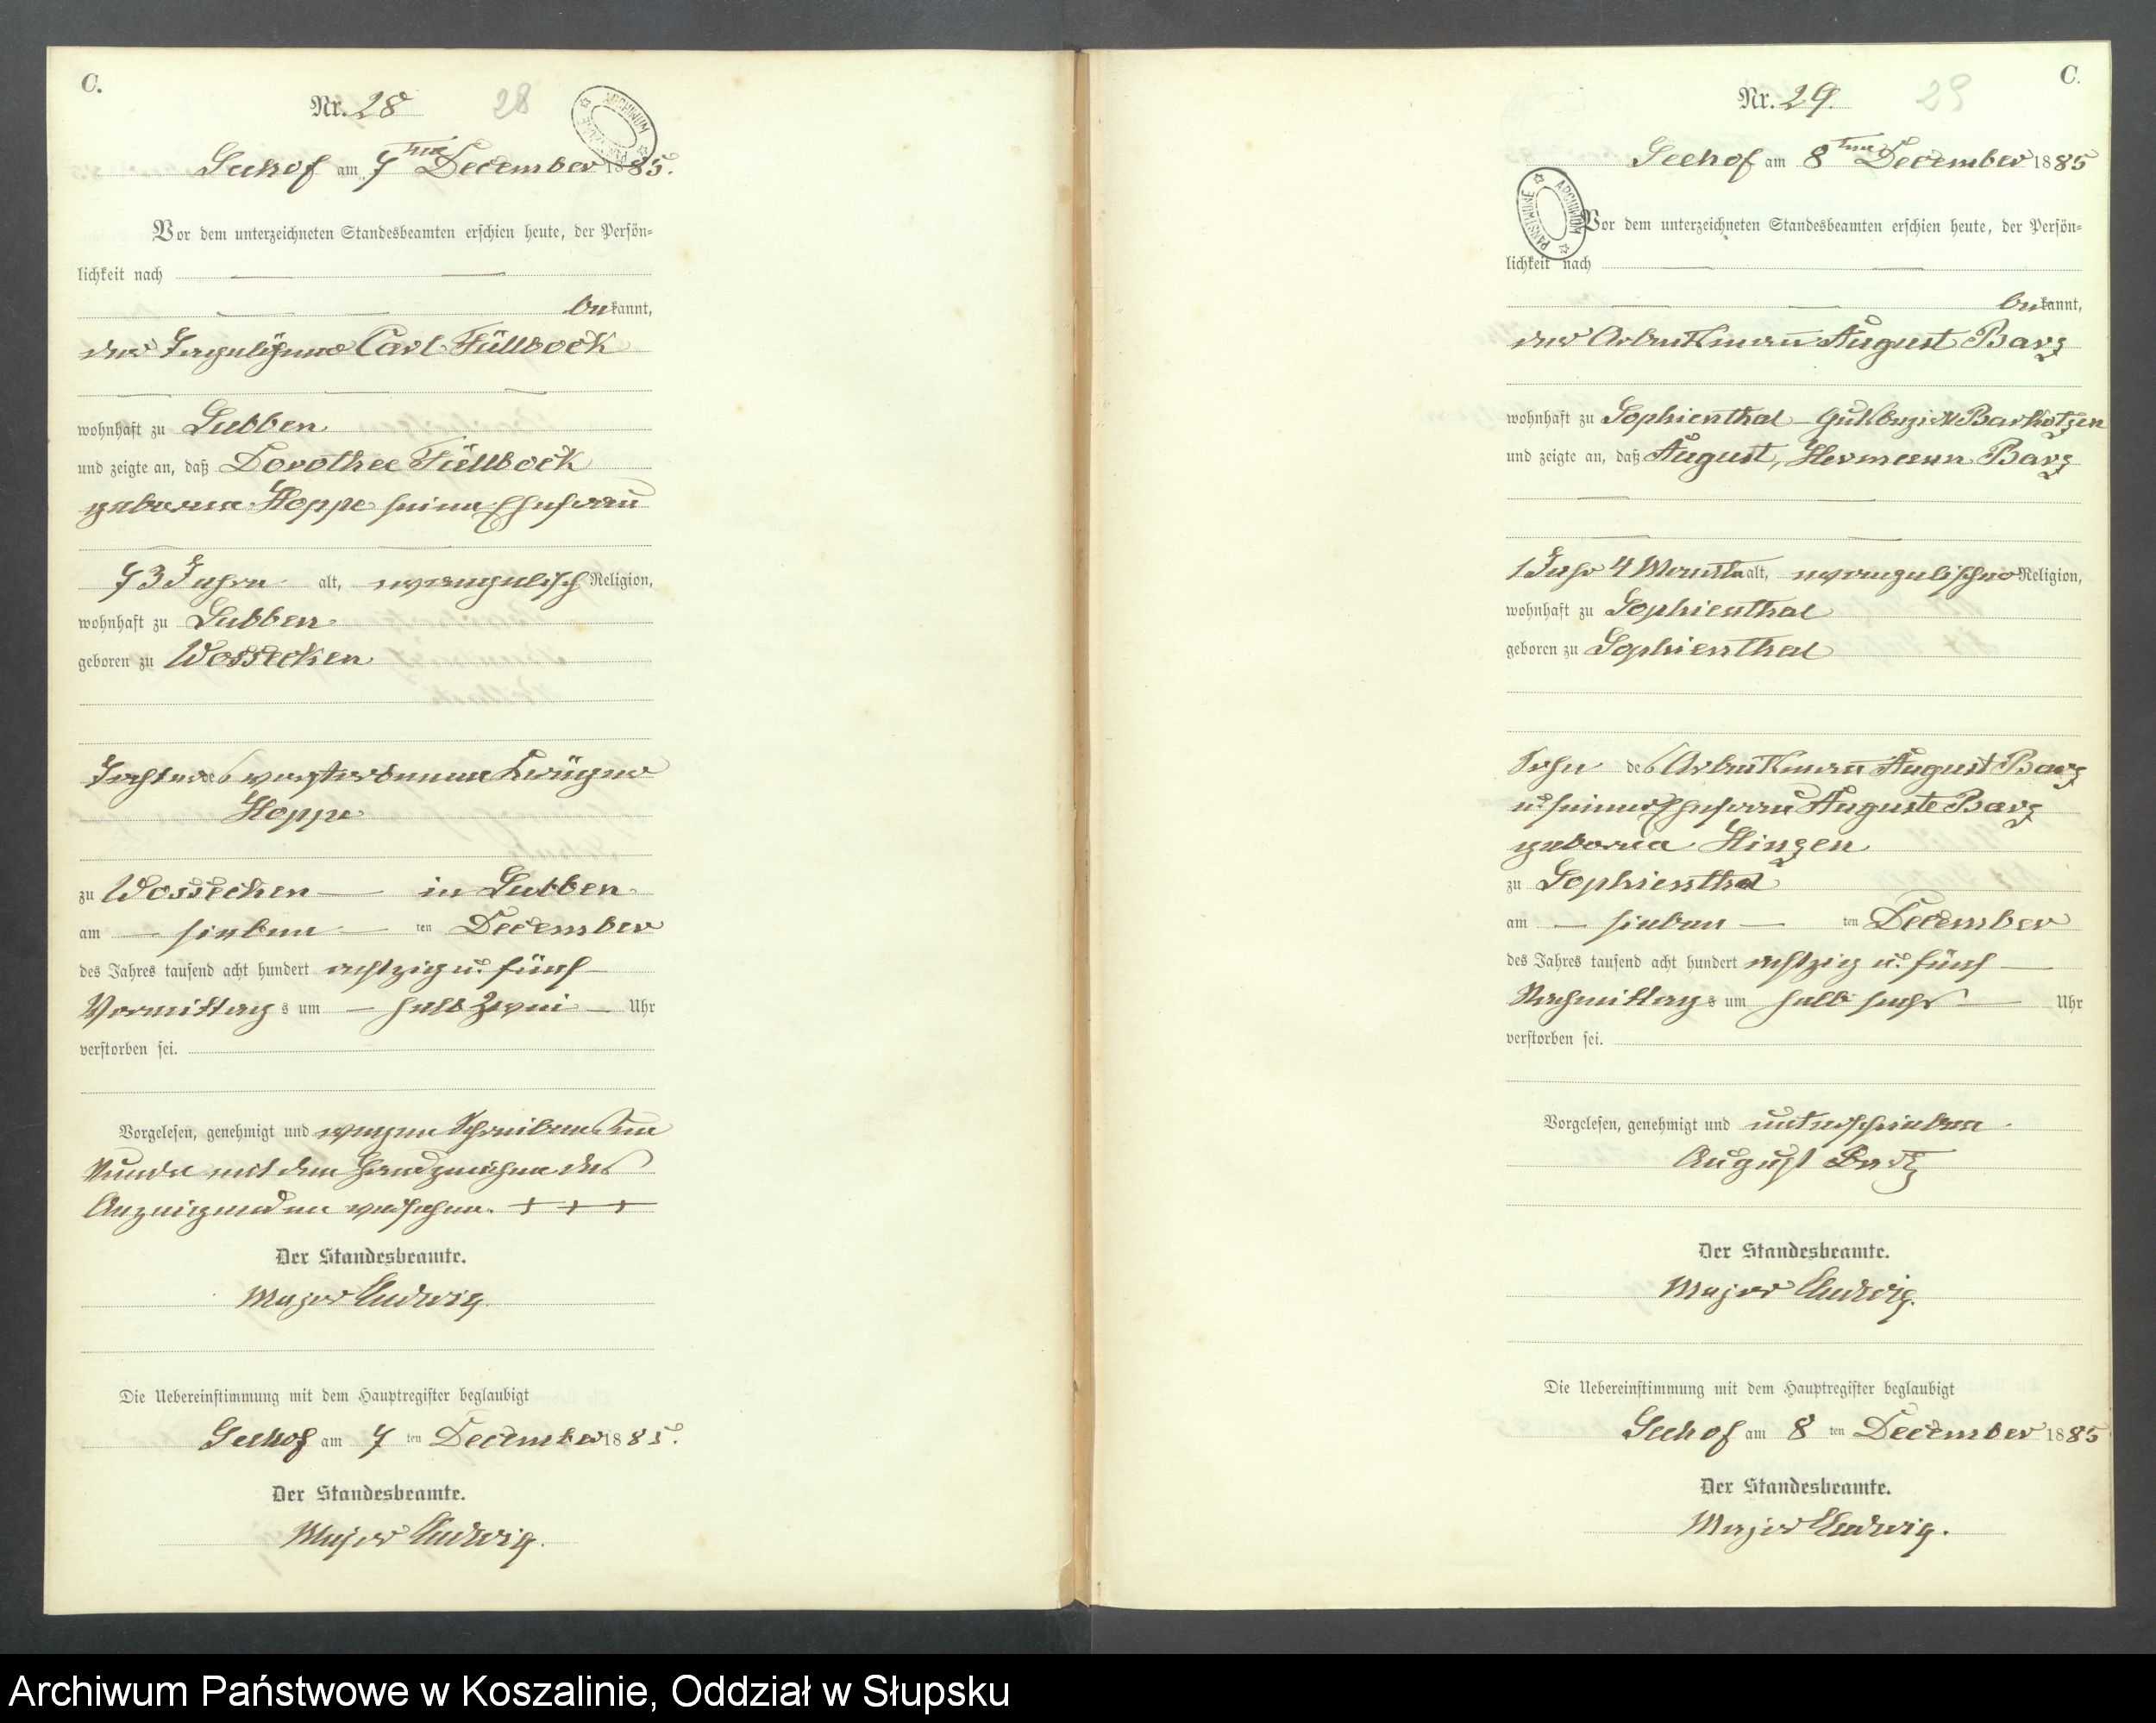 C.
Nr. 28 28
ARCHIWUM PAŃSTWOWE
Seehof am 7ten December 1885.
Vor dem unterzeichneten Standesbeamten erschien heute, der Persön=
lichkeit nach
bekannt,
der Carl Füllbock
wohnhaft zu Lubben
und zeigte an, daß Dorothee Füllbock
geborene Hoppe seine Ehefrau
73 Jahre alt, evangelisch Religion,
wohnhaft zu Lubben
geboren zu Wossecken
Tochter des verstorbenen Krüger
Hoppe
zu Wossecken — in Lubben
am — sieben — ten December
des Jahres tausend acht hundert achtzig u. fünf —
Vormittags um — halb zwei — Uhr
verstorben sei.
Vorgelesen, genehmigt und wegen Schreibens un
kunde mit dem Handzeichen des
Anzeigenden versehen. + + +
Der Standesbeamte.
Major Ludwig.
Die Uebereinstimmung mit dem Hauptregister beglaubigt
Seehof am 7 ten December 1885.
Der Standesbeamte.
Major Ludwig.
C.
Nr. 29. 29
ARCHIWUM PAŃSTWOWE
Seehof am 8ten December 1885
Vor dem unterzeichneten Standesbeamten erschien heute, der Persön=
lichkeit nach
bekannt,
der Arbeitsmann August Barz
wohnhaft zu Sophienthal Gutsbezirk Barkotzen
und zeigte an, daß August, Hermann Barz
1 Jahr 4 Monate alt, evangelischer Religion,
wohnhaft zu Sophienthal
geboren zu Sophienthal
Sohn des Arbeitsmann August Barz
u. seiner Ehefrau Auguste Barz
geborene Hinzen
zu Sophienthal
am — sieben — ten December
des Jahres tausend acht hundert achtzig u. fünf —
Nachmittags um halb sechs — Uhr
verstorben sei.
Vorgelesen, genehmigt und unterschrieben
August
Der Standesbeamte.
Major Ludwig.
Die Uebereinstimmung mit dem Hauptregister beglaubigt
Seehof am 8 ten December 1885
Der Standesbeamte.
Major Ludwig.
Archiwum Państwowe w Koszalinie, Oddział w Słupsku